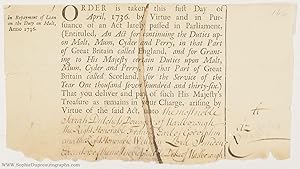 In Repayment of Loan
on the Duty on Malt,
Anno 1736.
ORDER is taken this first Day of
April, 1736. by Virtue and in Pur-
suance of an Act lately passed in Parliament,
(Entituled, An Act for continuing the Duties up-
on Malt, Mum, Cyder and Perry, in that Part
of Great Britain called England, and for Grant-
ing to His Majesty certain Duties upon Malt,
Mum, Cyder and Perry, in that Part of Great
Britain called Scotland, for the Service of the
Year One thousand seven hundred and thirty-six.)
That you deliver and pay of such His Majesty's
Treasure as remains in your Charge, arising by
Virtue of the said Act, to the most noble
Sarah Dutchess Dowager of Marlborough
the Right Honorable Francis Earl of Godolphin
and the Right Honorable
of Marlborough
www.SophieDupreautographs.com